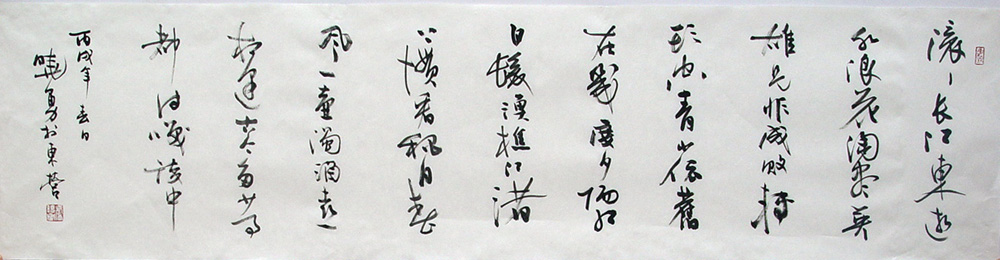 滚〻长江東逝
水浪花淘尽英
雄是非成败轉
头空青山依舊
在几度夕陽红
白髮漁樵江渚
上惯看秋月春
风一壶濁酒喜
相逢古今多少事
都付笑谈中
丙戌年春日
曉勇於東營